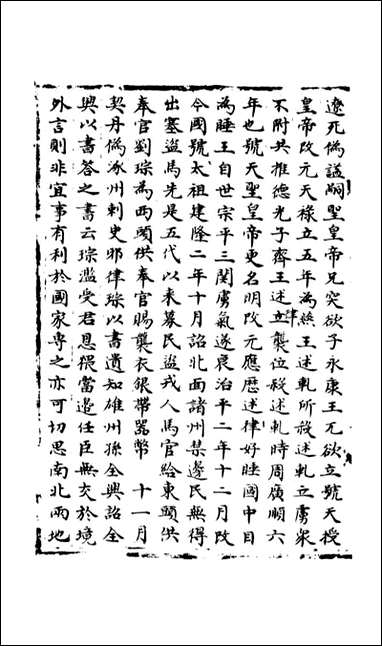 遼死僞謚嗣聖皇帝兄突欲子永康王兀欲立號天授
皇帝改元天祿立五年為燕王述軋所殺述軋立虜衆
不附共推德光子齊王述律立襲位殺述軋時周廣順六
年也號天聖皇帝更名明改元應歷述律好睡國中目
為睡王自世宗平三関虜氣遂衰治平二年十二月改
今國號太祖建隆二年十月詔北面諸州禁邊民無得
出塞盗馬先是五代以来募民盗戎人馬官給東頭供
奉官劉琮為西頭供奉官賜襲衣銀帶器幣 十一月
契丹僞涿州刺史邪律琮以書遺知雄州孫全興詔全
興以書答之書云琮濫受君恩猥當邊任臣無交於境
外言則非宜事有利於國家専之亦可切思南北兩地